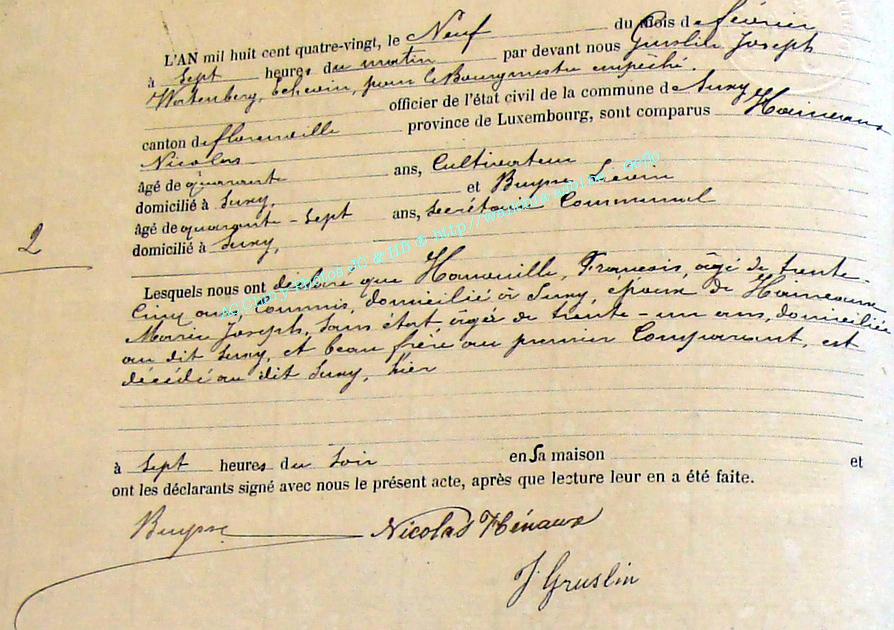 L'AN mil huit cent quatre-vingt, le Neuf du mois de février
à sept heures du matin par devant nous Gruslin Joseph
échevin, pour le Bourgmestre empêché.
officier de l'état civil de la commune de Suxy
canton de florenville province de Luxembourg, sont comparus Haineaux
Nicolas
âgé de quarante ans, Cultivateur
domicilié à Suxy, et Buysse Livin
âgé de quarante-sept ans, secrétaire Communal
domicilié à Suxy,
2
Lesquels nous ont déclaré que François, âgé de trente-
cinq ans, Commis, domicilié à Suxy, époux de Haineaux
Marie Joseph, sans état âgée de trente-un ans, domiciliée
au dit Suxy, et beau frère au premier Comparant, est
décédé au dit Suxy, hier
à sept heures du soir en sa maison et
ont les déclarants signé avec nous le présent acte, après que lecture leur en a été faite.
Buysse Nicolas Hénaux
J Gruslin